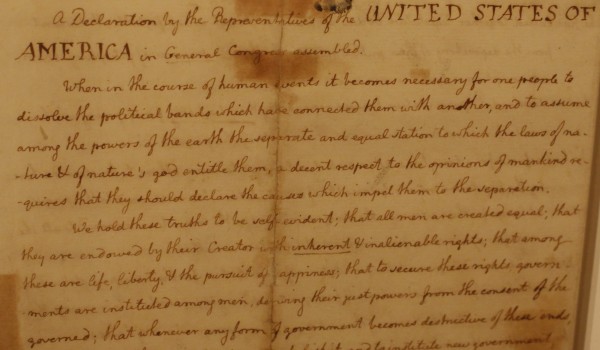 A Declaration by the Representatives of the UNITED STATES OF
AMERICA in General Congress assembled.
When in the course of human events it becomes necessary for one people to
dissolve the political bands which have connected them with another, and to assume
among the powers of the earth the separate and equal station to which the laws of na-
-ture & of nature's god entitle them, a decent respect to the opinions of mankind re-
-quires that they should declare the causes which impel them to the separation.
We hold these truths to be self evident; that all men are created equal; that
they are endowed by their Creator with inherent & inalienable rights; that among
these are life, liberty, & the pursuit of happiness; that to secure these rights govern-
-ments are instituted among men, deriving their just powers from the consent of the
governed; that whenever any form of government becomes destructive of these ends,
& to institute new government,